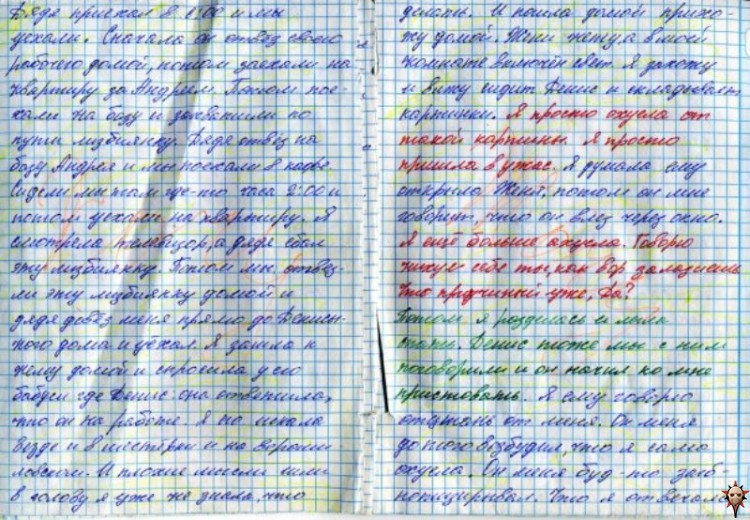 Дядя приехал в 6:00 и мы
уехали. Сначала он отвёз своего
рабочего домой, потом заехали на
квартиру за Андреем. Потом пое-
хали на базу и захватили по
пути лизбиянку. Дядя отвёз на
базу Андрея и мы поехали в кафе.
Сидели мы там где-то часа 2:00 и
потом уехали на квартиру. Я
смотрела телевизор, а дядя ебал
эту лизбиянку. Потом мы отвез-
ли эту лизбиянку домой и
дядя довёз меня прямо до Денисы-
ного дома и уехал. Я зашла к
нему домой и спросила у его
бабуси где Денис, она ответила,
что он на работе. Я его искала
везде и в шестёрки и на вороши
ловском. И плохие мысли шли
в голову я уже не знала, что
делать. И пошла домой прихо-
жу домой. Жени нету, а в моей
комнате включён свет. Я захожу
и вижу сидит Денис и складывает
картинки. Я просто охуела от
такой картины. Я просто
пришла в ужас. Я думала ему
открыла Женя, потом он мне
говорит, что он влез через окно.
Я ещё больше ахуела. Говорю
нихуя себе ты, как вор залазиешь
Что придчиный уже, да?
Потом я розделась и легла
спать. Денис тоже мы с ним
поговорили и он начил ко мне
приставать. Я ему говорю
отстань от меня. Он меня
до того возбудил, что я сама
охуела. Он меня буд-то заги-
потизировал. Что я отвечала